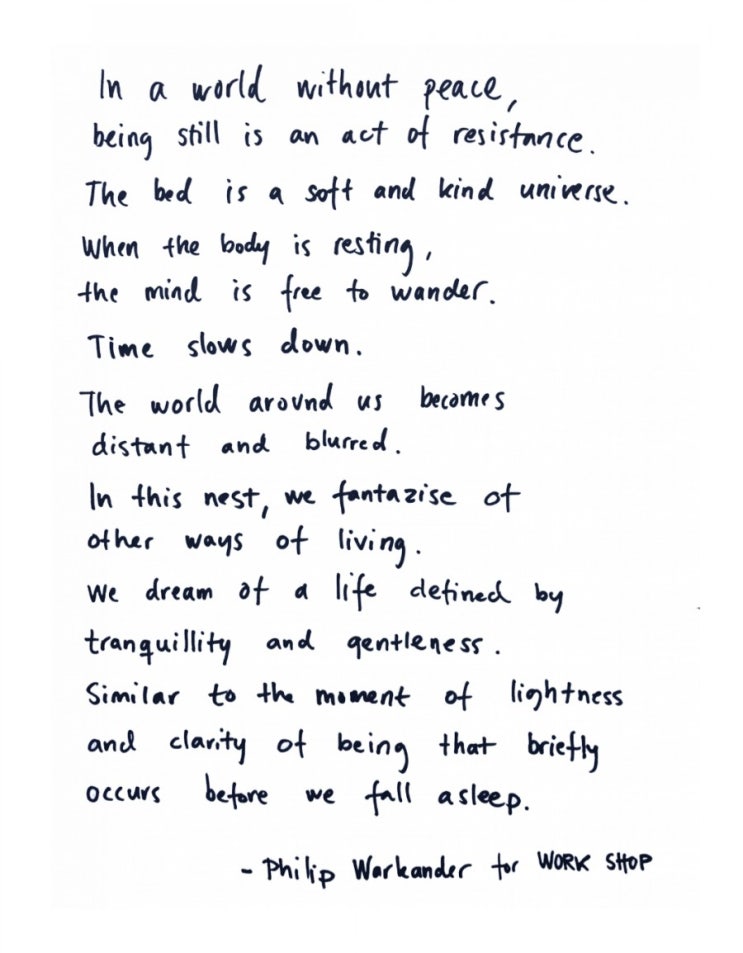 In a world without peace,
being still is an act of resistance.
The bed is a soft and kind universe.
When the body is resting,
the mind is free to wander.
Time slows down.
The world around us becomes
distant and blurred.
In this nest, we fantazise of
other ways of living.
We dream of a life defined by
tranquillity and gentleness.
Similar to the moment of lightness
and clarity of being that briefly
occurs before we fall asleep.
- Philip Warkander for WORK SHOP